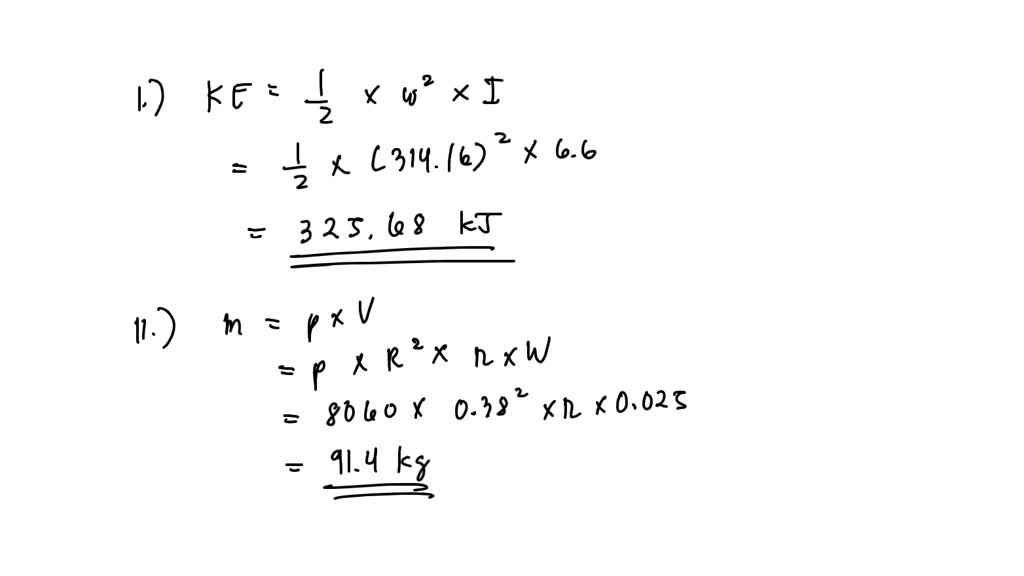 I.) KE = 1/2 × w² × I
= 1/2 × (314.16)² × 6.6
= 325.68 kJ
II.) m = ρ × V
= ρ × R² × π × W
= 8060 × 0.38² × π × 0.025
= 91.4 kg